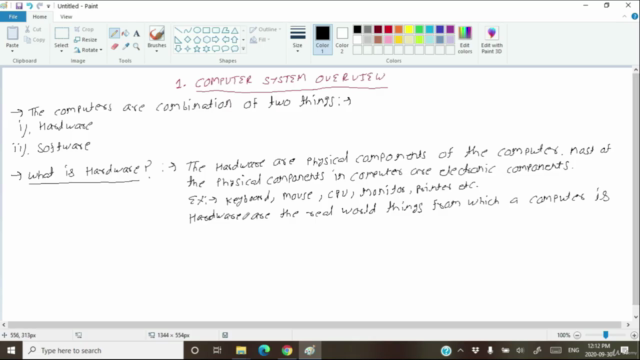 Untitled - Paint
File
Home
View
Cut
Copy
Paste
Crop
Resize
Rotate
Select
Brushes
Outline
Fill
Size
Color 1
Color 2
Edit colors
Edit with Paint 3D
Clipboard
Image
Tools
Shapes
Colors
1. COMPUTER SYSTEM OVERVIEW
→ The computers are combination of two things:→
i), Hardware
ii), Software
→ What is Hardware? :→ The Hardware are physical components of the computer. Most of
the physical components in computer are electronic components.
Ex:→ Keyboard, mouse, CPU, Monitor, Printer etc.
Hardware are the real world things from which a computer is
556, 313px
1344 × 554px
100%
Type here to search
ENG
12:12 PM
2020-09-30